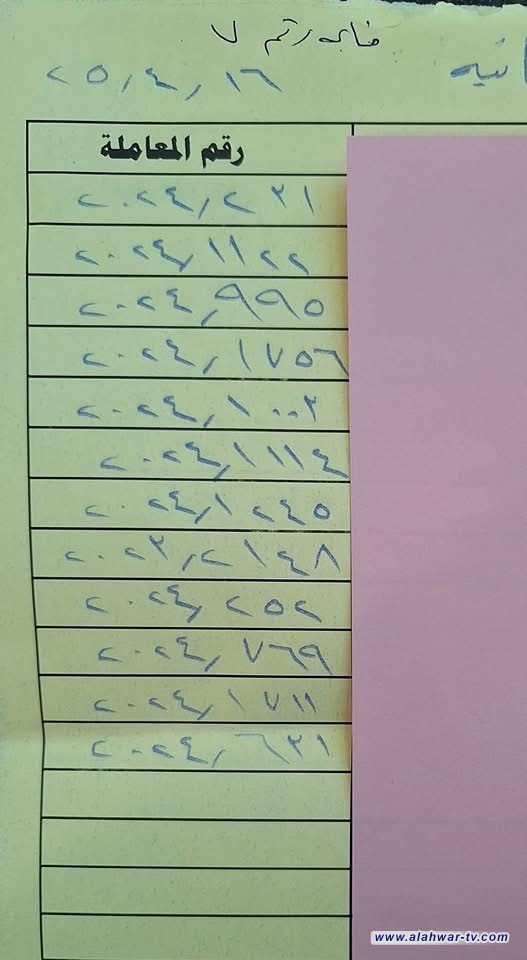 قائمه رقم ٧
٢٥/٤/١٦
رقم المعاملة
٢٠٢٤/٢٣١
٢٠٢٤/١١٢٢
٢٠٢٤/٩٩٥
٢٠٢٤/١٧٥٦
٢٠٢٤/١٠٠٣
٢٠٢٤/١١١٤
٢٠٢٤/١٢٤٥
٢٠٢٣/٢١٤٨
٢٠٢٤/٢٥٢
٢٠٢٤/٧٦٩
٢٠٢٤/١٧١١
٢٠٢٤/٦٣١
www.alahwar-tv.com